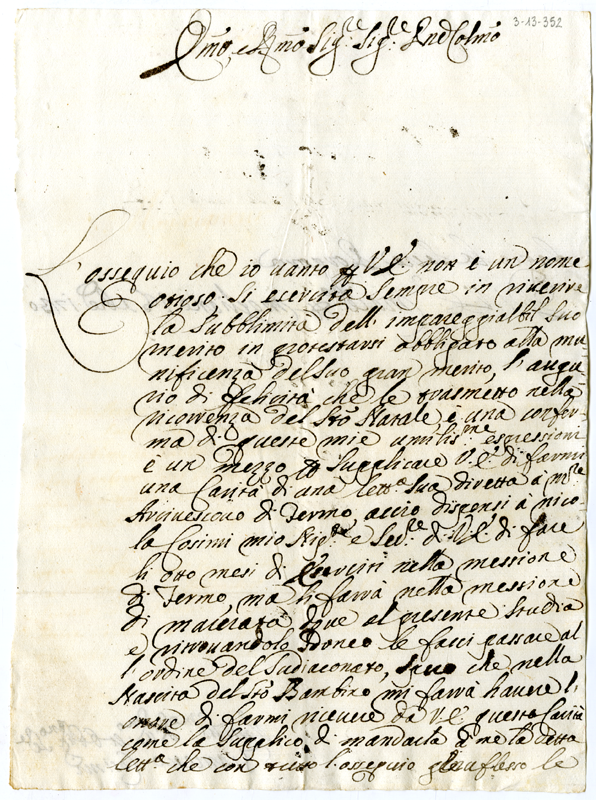 3-13-352
Emo, e Rmo Sig.re Sig.re Pne Colmo
L'ossequio che io vanto p V.E. non è un nome
otioso. Si esercita sempre in riverire
la subblimità dell'impareggiabil suo
merito in protestarsi obbligato alla mu
nificenza del suo gran merito, l'augu
rio di felicità che le trasmetto nella
ricorrenza del Sto Natale, è una confer
ma di queste mie umiliss.me espressioni
è un mezzo p supplicare V.E. di farmi
una Carità di una lett.a sua diretta à Mre
Arcivescovo di Fermo acciò dispensi à Nico
la Cosimi mio Nip.e e Ser.e di V.E. di fare
li otto mesi di Esercitii nella messione
di Fermo, ma li farrà nella messione
di Macerata dove al presente studia
e ritrovandolo Idoneo le facci passare al
l'ordine del Sudiaconato, che nella
Nascita del Sto Bambino mi farrà havere l'
onore di farmi ricevere da V.E. questa Carità
come la supplico di mandarla à me la detta
lett.a che con tutto l'ossequio le